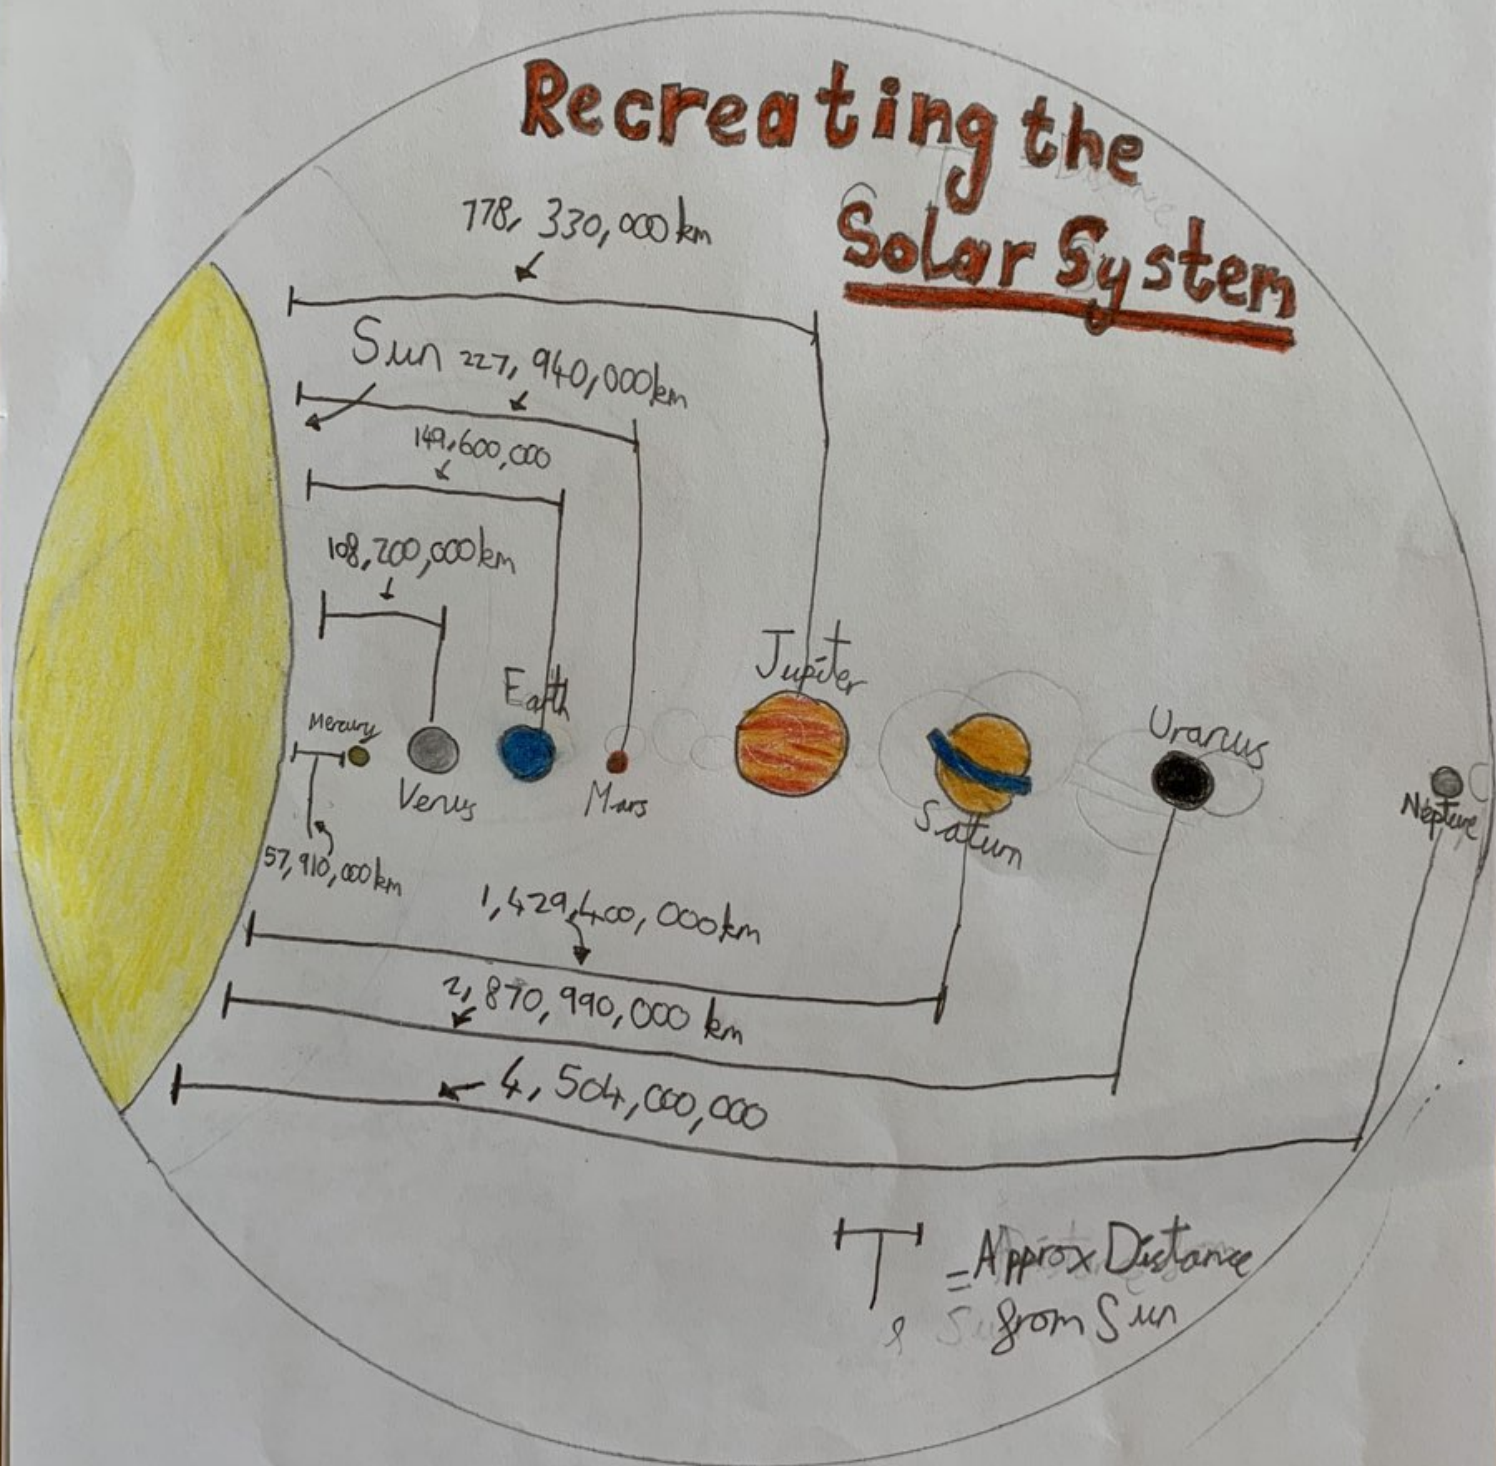 Recreating the
Solar System
778, 330,000km
Sun
227, 940,000km
149,600,000
108,200,000km
Mercury
Venus
Earth
Mars
Jupiter
Saturn
Uranus
Neptune
57,910,000km
1,429,400,000km
2,870,990,000 km
4,504,000,000
= Approx Distance
from Sun